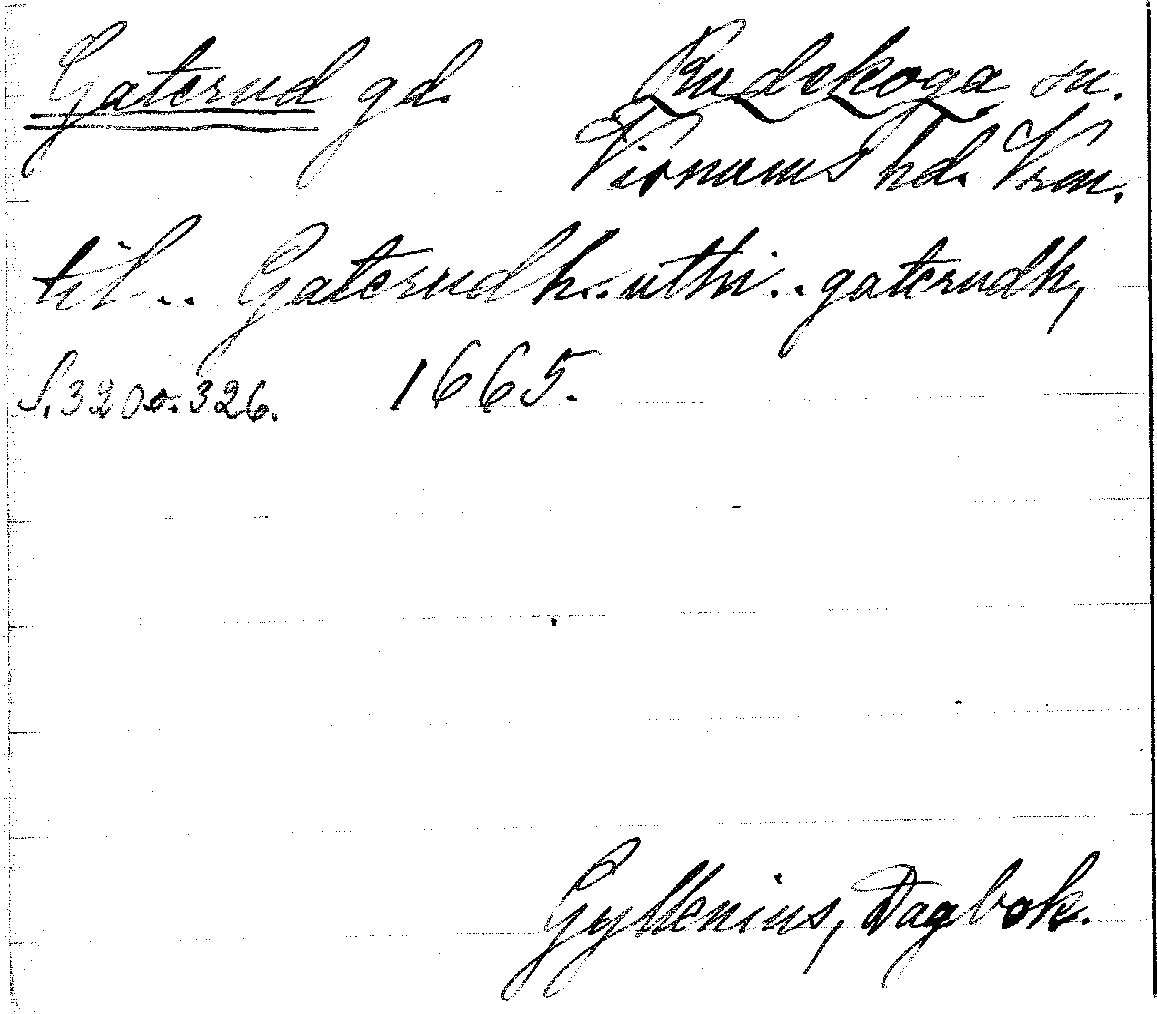 Gaterud gd. Rudskoga sn.
Visnums hd. Vrm.
til .. Gaterudh .. uthi .. gaterudh,
S. 320 o. 326. 1665.
Gyllenius, Dagbok.